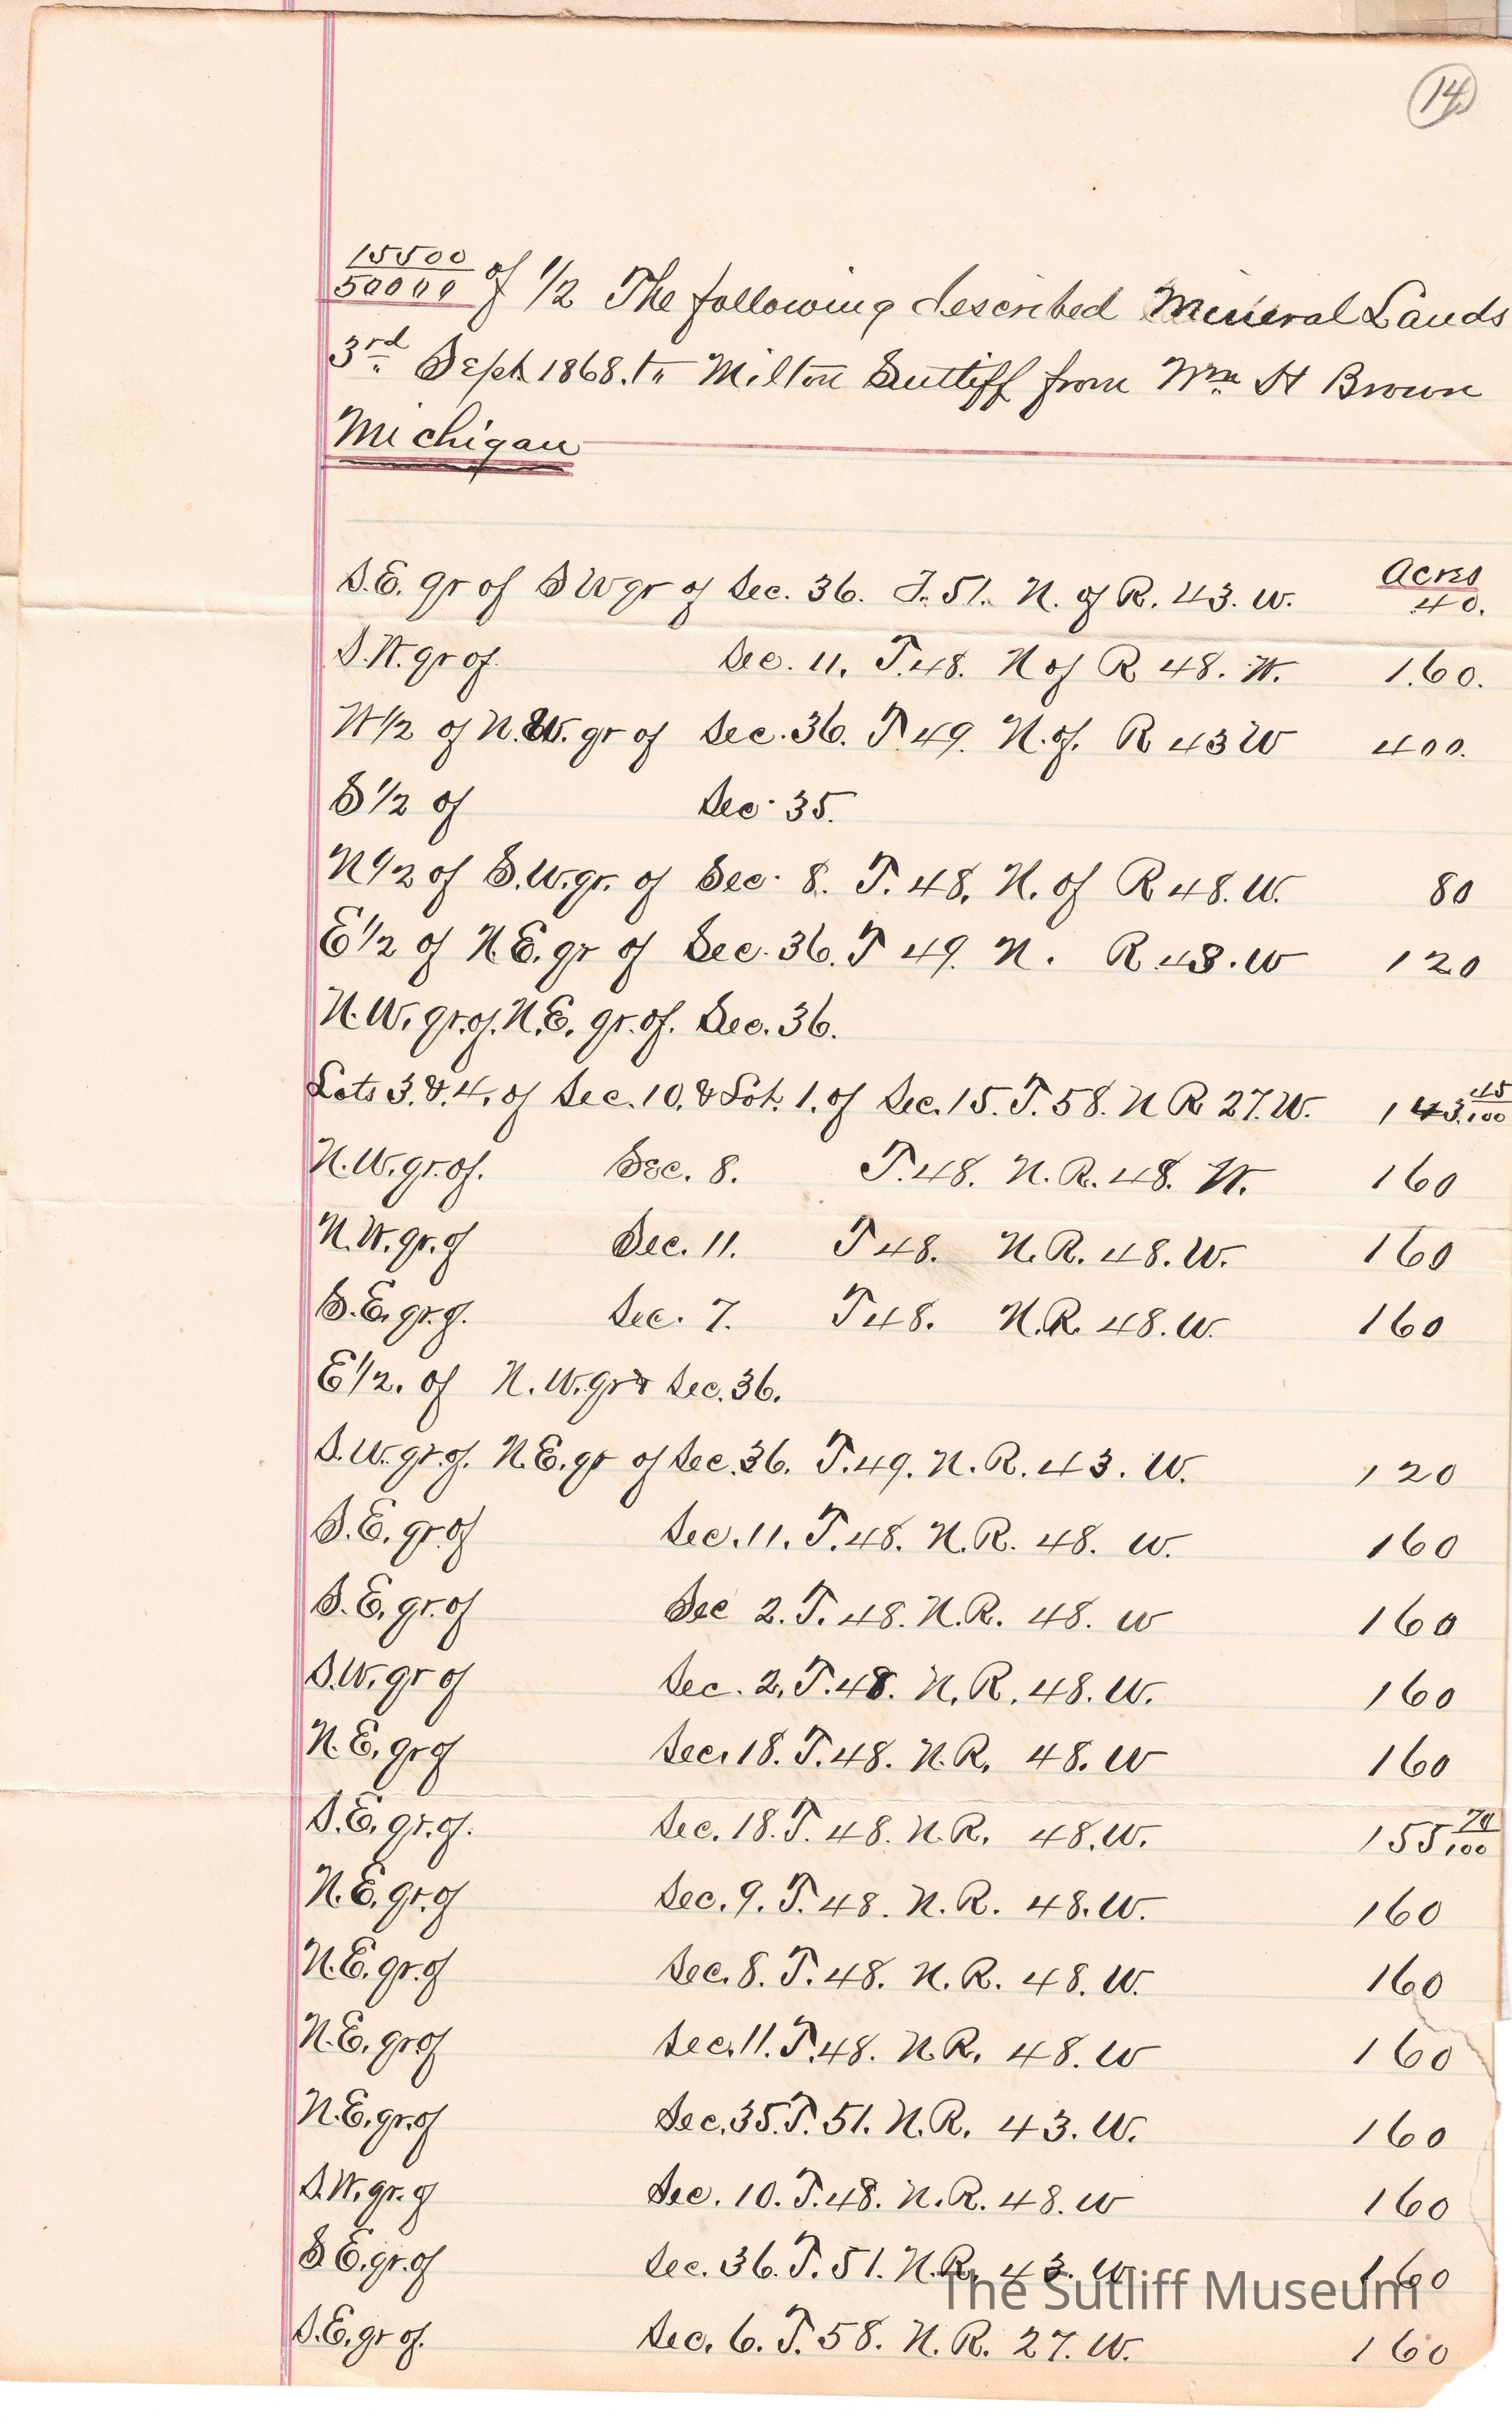 14
15500
50000 of 1/2 The following described Mineral Lands
3rd Sept. 1868. to Milton Sutliff from Wm H Brown
Michigan
Acres
S.E. qr of S W qr of Sec. 36. T. 51. N. of R. 43. W. 40.
S.W. qr of Sec. 11. T. 48. N of R 48. W. 160.
W 1/2 of N.W. qr of Sec. 36. T 49. N. of. R 43 W 400.
S 1/2 of Sec. 35.
N 1/2 of S.W. qr. of Sec. 8. T. 48. N. of R 48. W. 80
E 1/2 of N.E. qr of Sec. 36. T 49. N. R 43. W 120
N.W. qr. of. N.E. qr. of. Sec. 36.
Lots 3. & 4. of Sec. 10. & Lot. 1. of Sec. 15. T. 58. N R 27. W. 143 45/100
N.W. qr. of. Sec. 8. T. 48. N. R. 48. W. 160
N.W. qr. of Sec. 11. T 48. N. R. 48. W. 160
S.E. qr. of. Sec. 7. T 48. N.R. 48. W. 160
E 1/2. of N. W. qr Sec. 36.
S.W. qr. of. N.E. qr of Sec. 36. T. 49. N. R. 43. W. 120
S.E. qr. of Sec. 11. T. 48. N.R. 48. W. 160
S.E. qr. of Sec 2. T. 48. N.R. 48. W 160
S.W. qr of Sec. 2. T. 48. N. R. 48. W. 160
N.E. qr of Sec. 18. T. 48. N.R. 48. W 160
S.E. qr. of. Sec. 18. T. 48. N.R. 48. W. 155 70/100
N.E. qr. of Sec. 9. T. 48. N. R. 48. W. 160
N.E. qr. of Sec. 8. T. 48. N. R. 48. W. 160
N.E. qr of Sec. 11. T. 48. N.R. 48. W 160
N.E. qr. of Sec. 35. T. 51. N.R. 43. W. 160
S.W. qr. of Sec. 10. T. 48. N. R. 48. W 160
S E. qr. of Sec. 36. T. 51. N.R. 43. W. 160
The Sutliff Museum
S.E. qr of. Sec. 6. T. 58. N. R. 27. W. 160